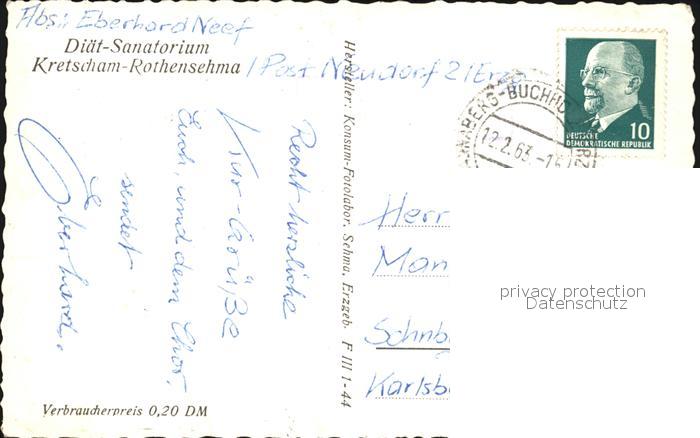 Abs.: Eberhard Neef
Diät-Sanatorium
Kretscham-Rothensehma / Post Neudorf 2 / Erzg.
Recht herzliche
Kur-Grüße
Euch, und dem Chor,
sendet
Eberhard.
Verbraucherpreis 0,20 DM
Hersteller: Konsum-Fotolabor, Sehma, Erzgeb. F III 1-44
ANNABERG-BUCHHO
12.2.63-15
DEUTSCHE
DEMOKRATISCHE REPUBLIK
10
Herr
Man
Schnb
Karlsb
privacy protection
Datenschutz